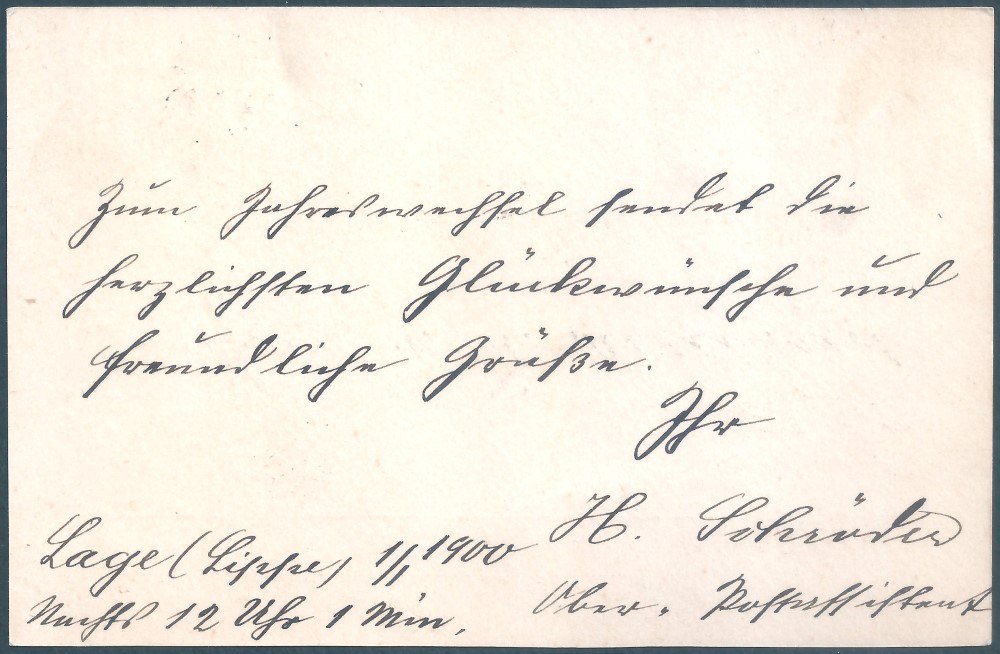 Zum Jahreswechsel sendet die
herzlichsten Glückwünsche und
freundliche Grüße.
Ihr
H. Schröder
Ober-Postassistent
Lage (Lippe) 1/1 1900
Nachts 12 Uhr 1 Min.